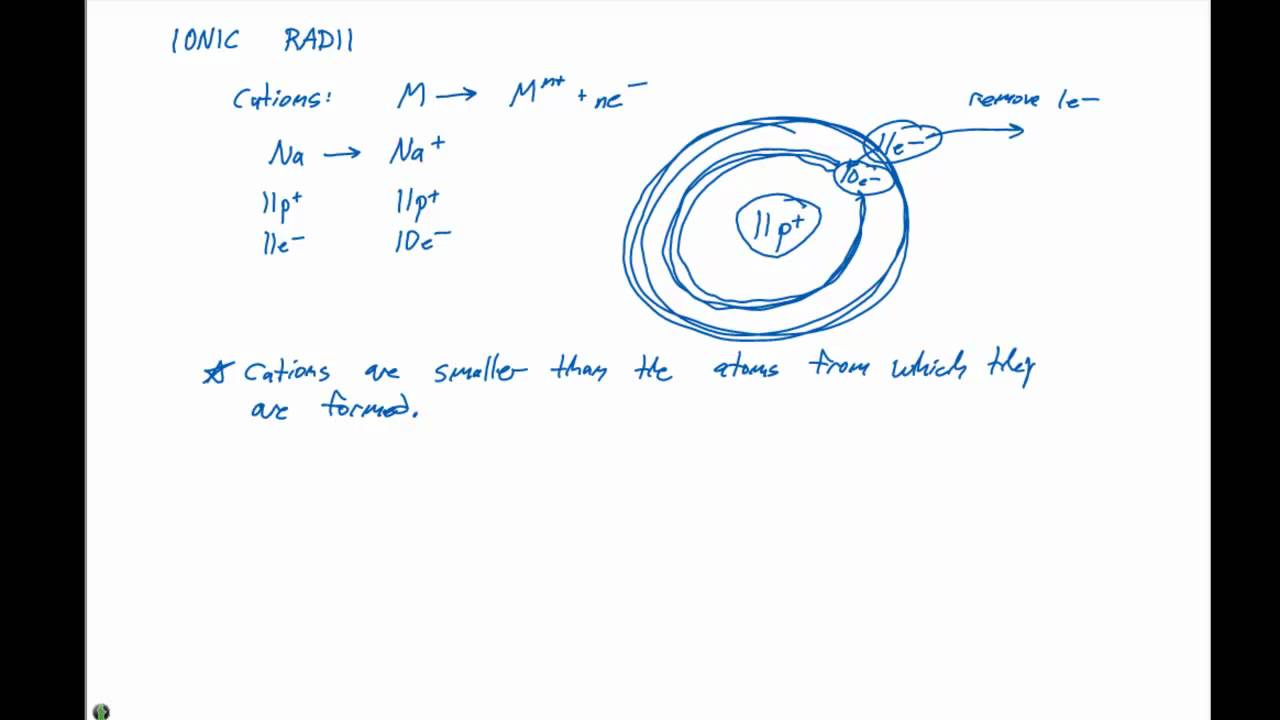 IONIC RADII
Cations: M → Mⁿ⁺ + ne⁻
remove 1e⁻
Na → Na⁺
11e⁻
10e⁻
11p⁺ 11p⁺
11p⁺
11e⁻ 10e⁻
☆ Cations are smaller than the atoms from which they
are formed.